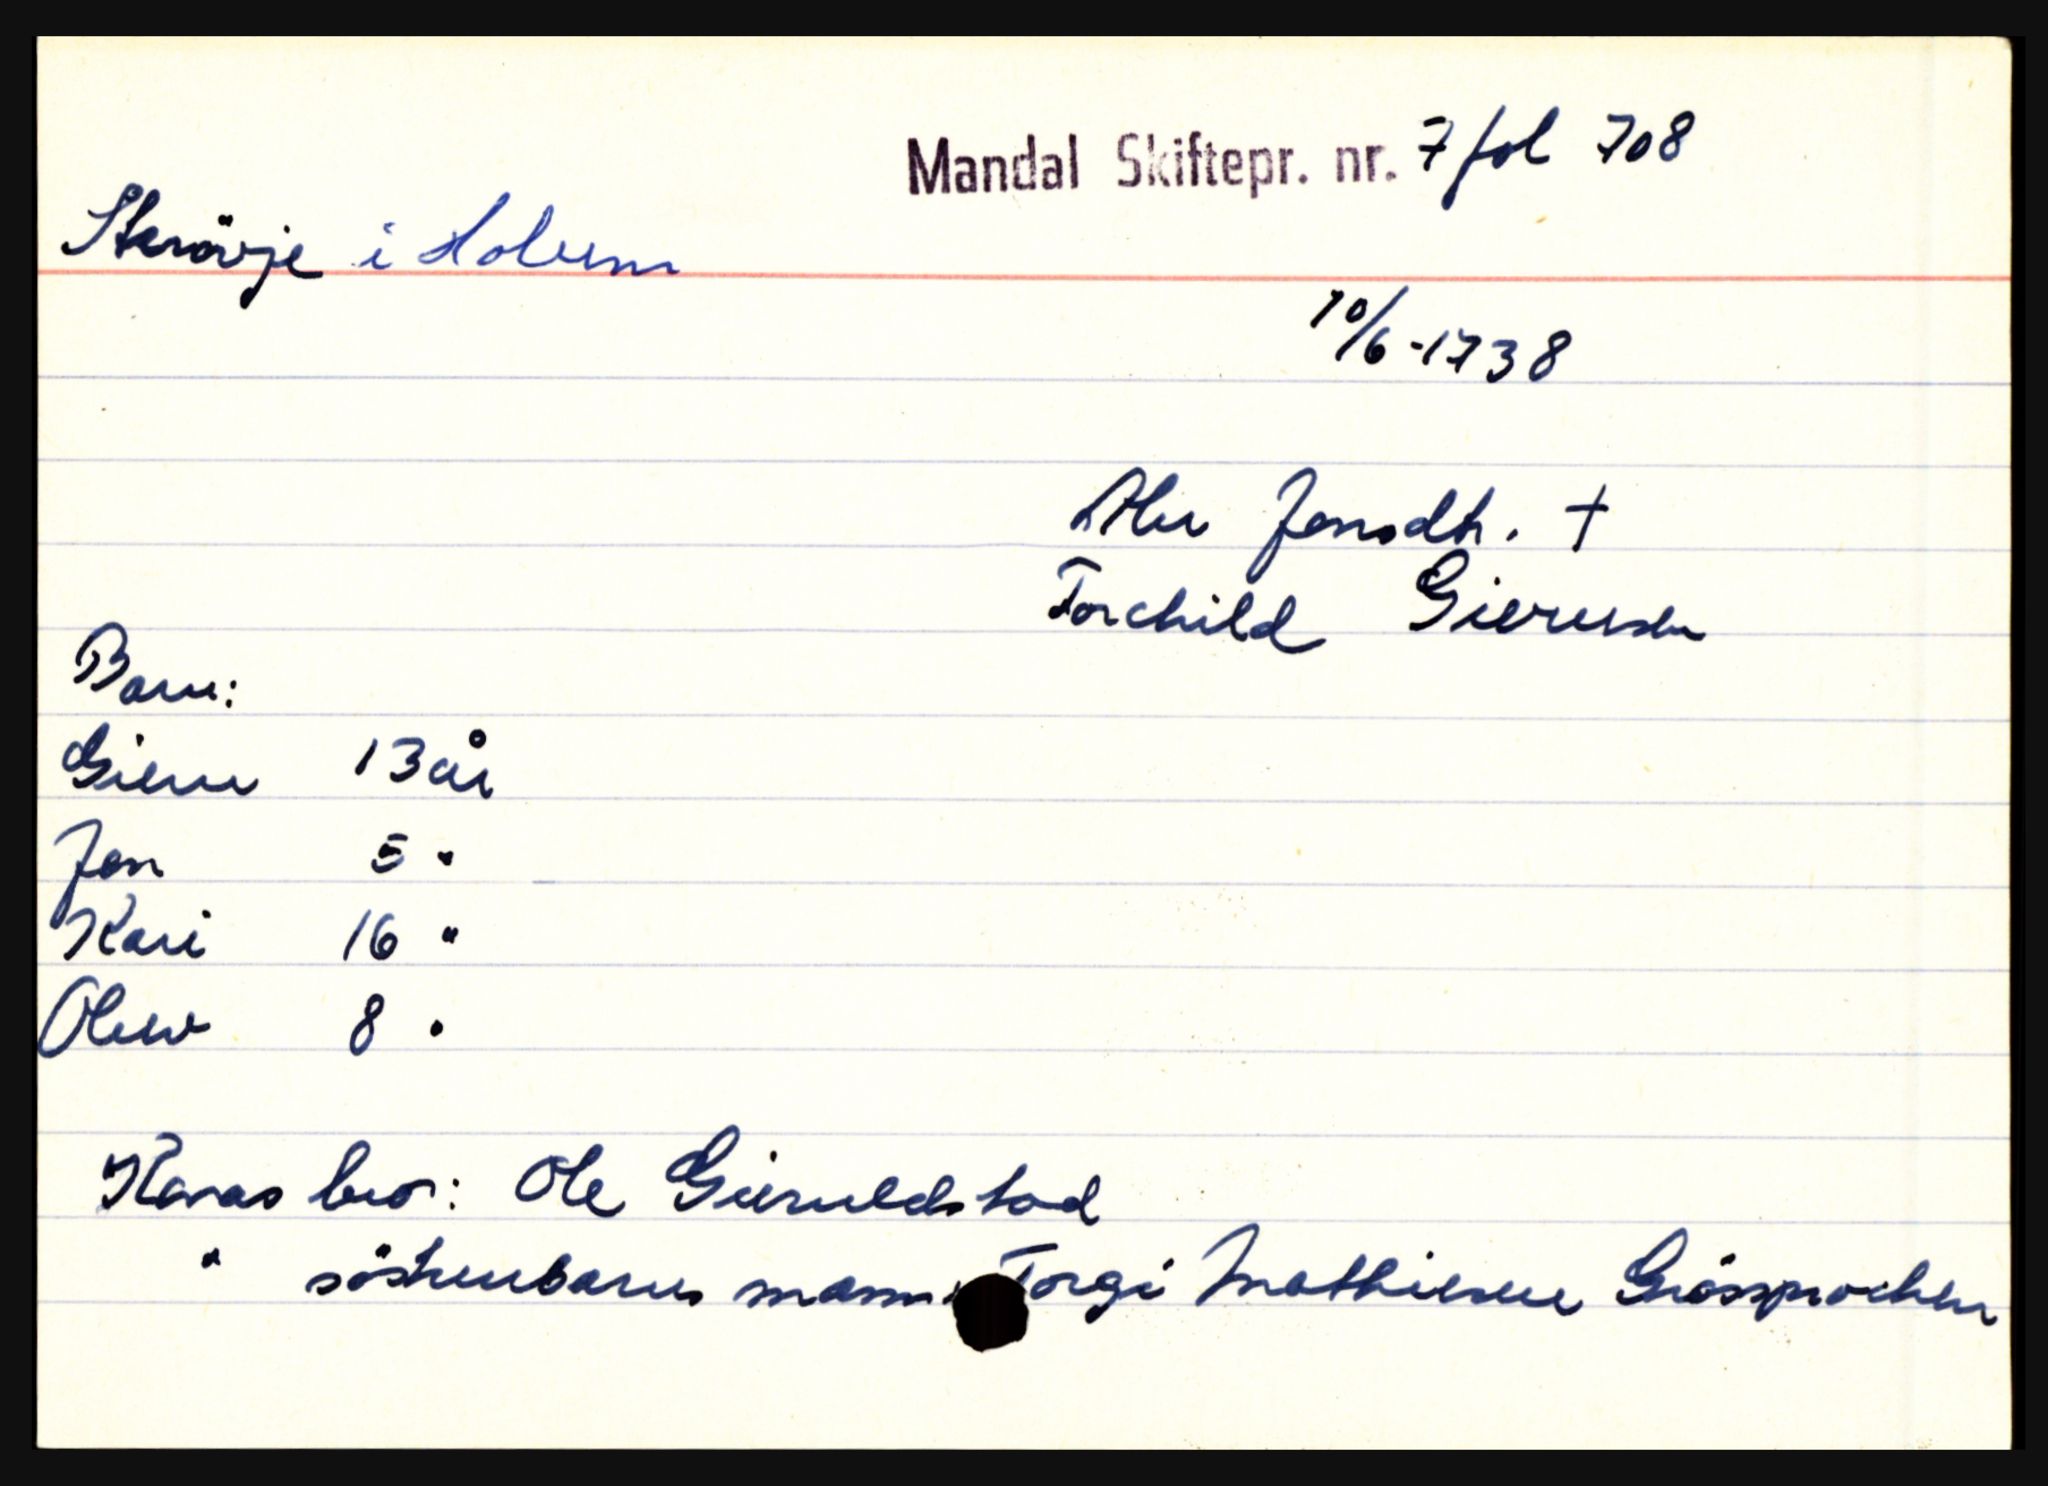 Mandal Skiftepr. nr. 7 fol 708
Skrövje i Holum
10/6-1738
Jensdtr. +
Torchild Gierulsen
Barn:
Gierul 13 år
Jen 5 "
Kari 16 "
Olew 8 "
Karas bror: Ole Gieruldstad
" söskenbarns mann: Torgi Mathiesen